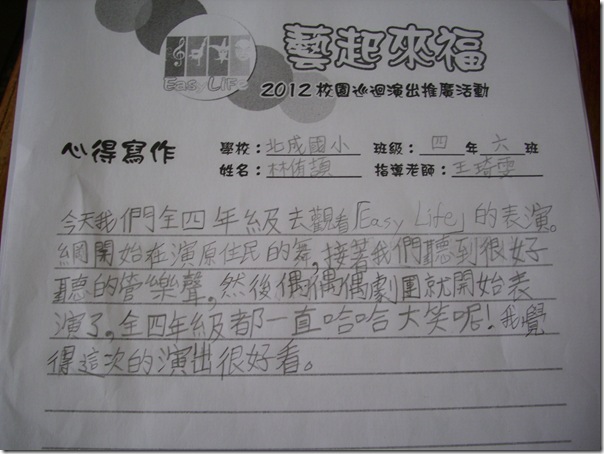 Easy Life
藝起來福
2012校園巡迴演出推廣活動
心得寫作
學校：北成國小 班級：四年六班
姓名：林侑蕷 指導老師：王琦雯
今天我們全四年級去觀看「Easy Life」的表演。
綱開始在演原住民的舞，接著我們聽到很好
聽的管樂聲，然後偶偶偶劇團就開始表
演了，全四年級都一直哈哈大笑呢！我覺
得這次的演出很好看。